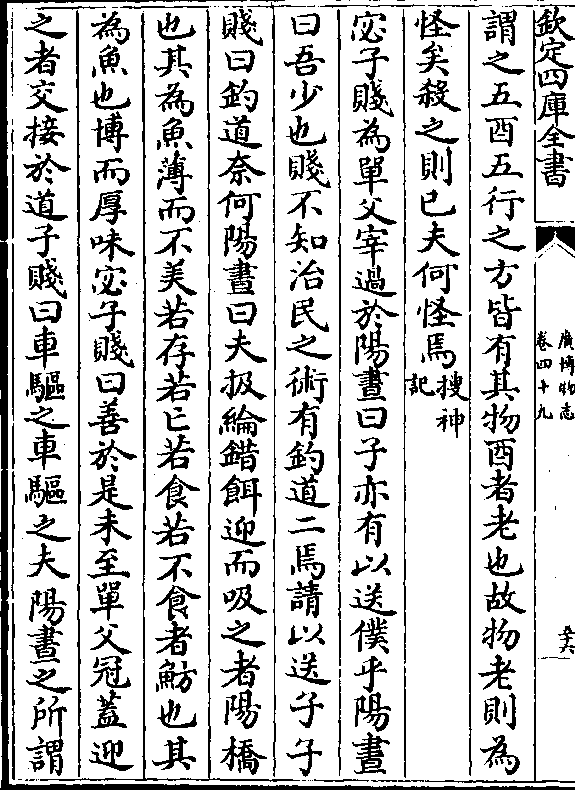 欽定四庫全書
廣博物志
卷四十九
謂之五酉五行之方皆有其物酉者老也故物老則為
怪矣殺之則已夫何怪焉搜神記
宓子賤為單父宰過於陽晝曰子亦有以送僕乎陽晝
曰吾少也賤不知治民之術有釣道二焉請以送子子
賤曰釣道奈何陽晝曰夫扱綸錯餌迎而吸之者陽橋
也其為魚薄而不美若存若亡若食若不食者魴也其
為魚也博而厚味宓子賤曰善於是未至單父冠蓋迎
之者交接於道子賤曰車驅之車驅之夫陽晝之所謂